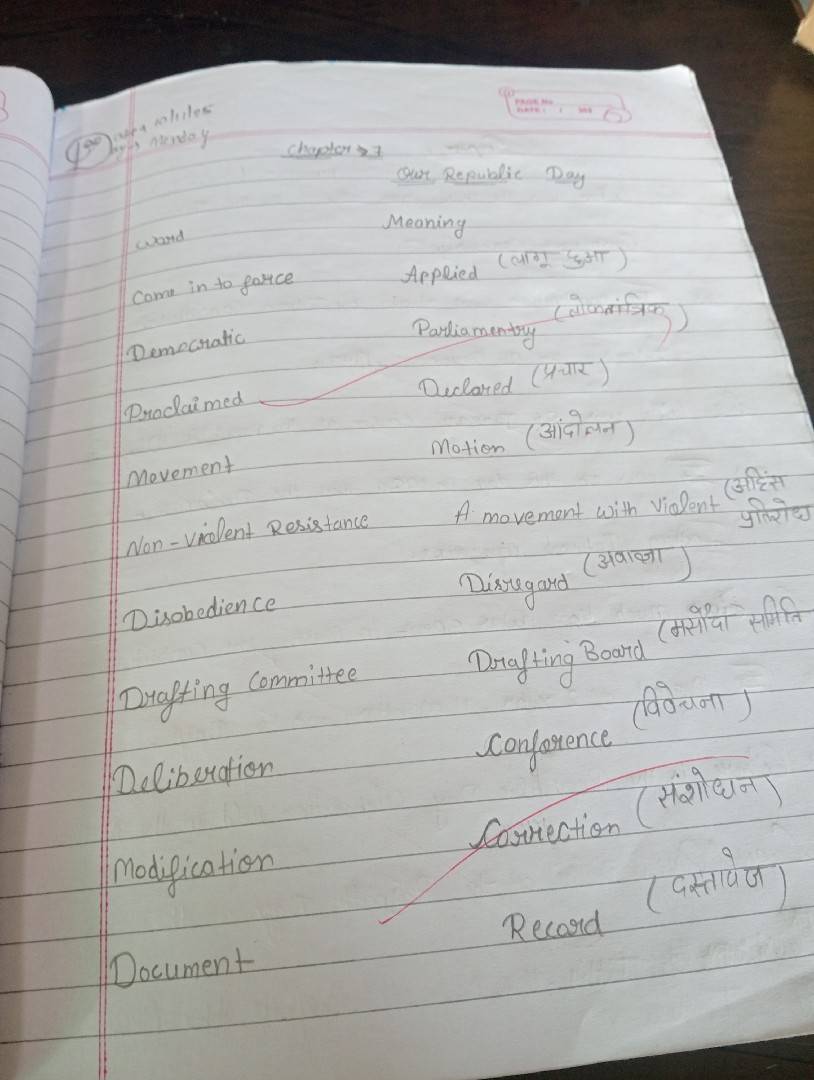 Monday
PAGE NO
DATE:
Chapter → 7
Our Republic Day
Word Meaning
Come in to force Applied (लागू हुआ)
Democratic Parliamentry (लोकतांत्रिक)
Proclaimed Declared (प्रचार)
Movement Motion (आंदोलन)
Non-Violent Resistance A movement with Violent (अहिंस
प्रतिरोध
Disobedience Disregard (अवाज्ञा)
Drafting Committee Drafting Board (मसौदा समिति
Deliberation Conference (विवेचना)
Modification Correction (संशोधन)
Document Record (दस्तावेज)